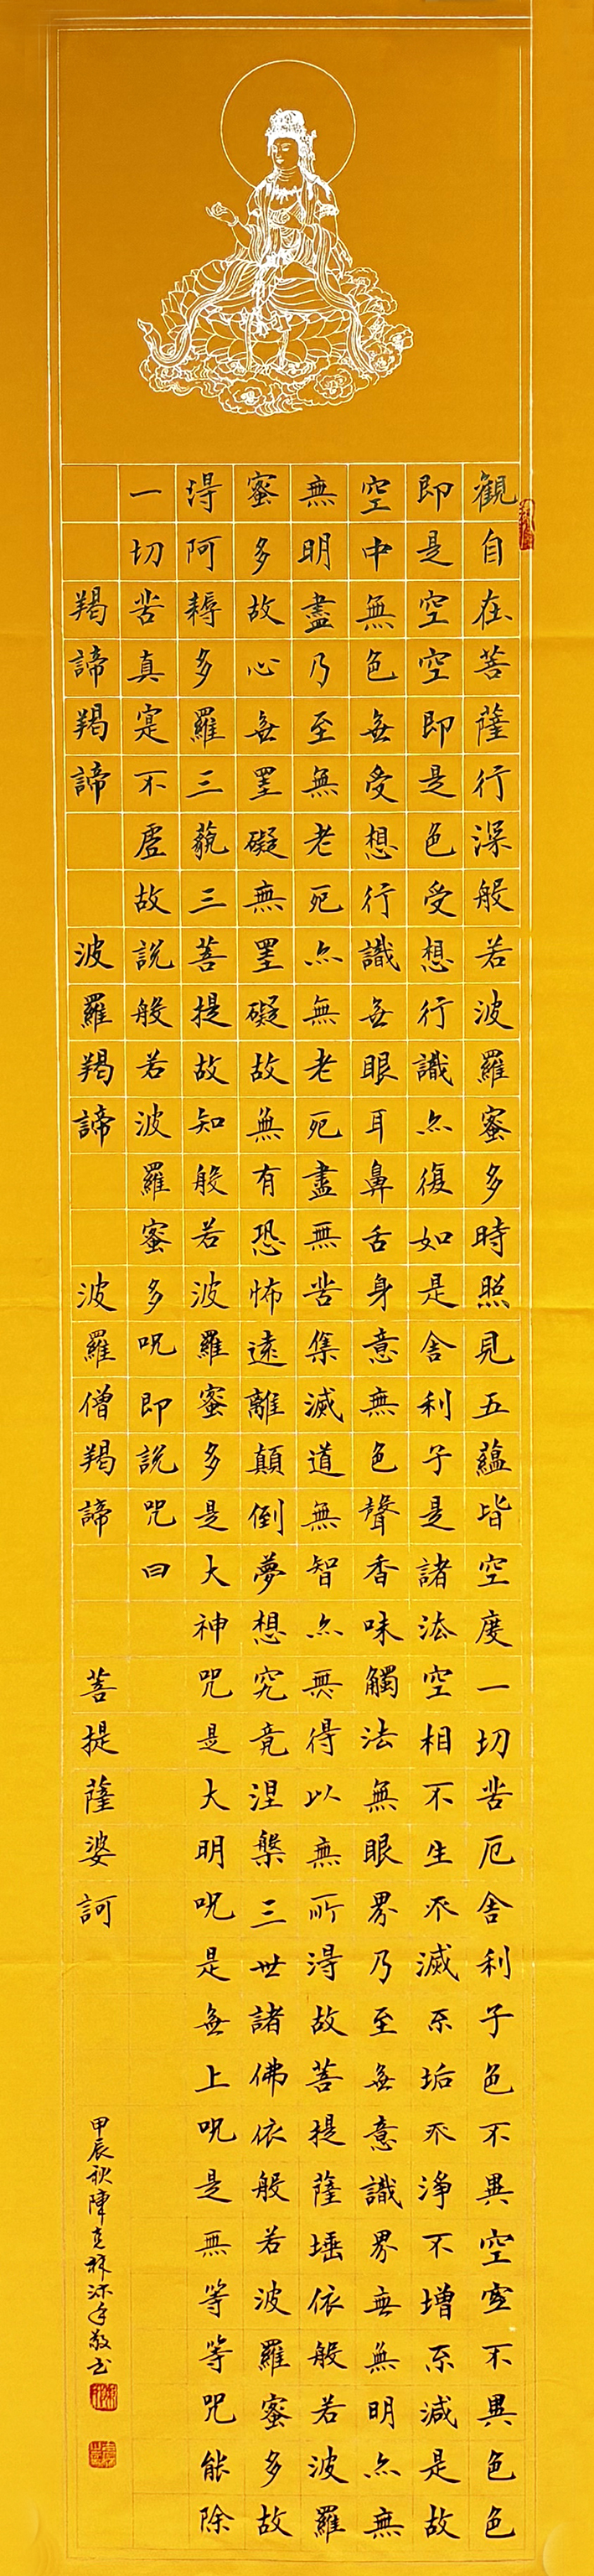 觀自在菩薩行深般若波羅蜜多時照見五蘊皆空度一切苦厄舍利子色不異空空不異色色
即是空空即是色受想行識亦復如是舍利子是諸法空相不生不滅不垢不淨不增不減是故
空中無色無受想行識無眼耳鼻舌身意無色聲香味觸法無眼界乃至無意識界無無明亦無
無明盡乃至無老死亦無老死盡無苦集滅道無智亦無得以無所得故菩提薩埵依般若波羅
蜜多故心無罣礙無罣礙故無有恐怖遠離顛倒夢想究竟涅槃三世諸佛依般若波羅蜜多故
得阿耨多羅三藐三菩提故知般若波羅蜜多是大神咒是大明咒是無上咒是無等等咒能除
一切苦真寔不虛故說般若波羅蜜多咒即說咒曰
羯諦羯諦 波羅羯諦 波羅僧羯諦 菩提薩婆訶
甲辰秋陳克沐手敬书